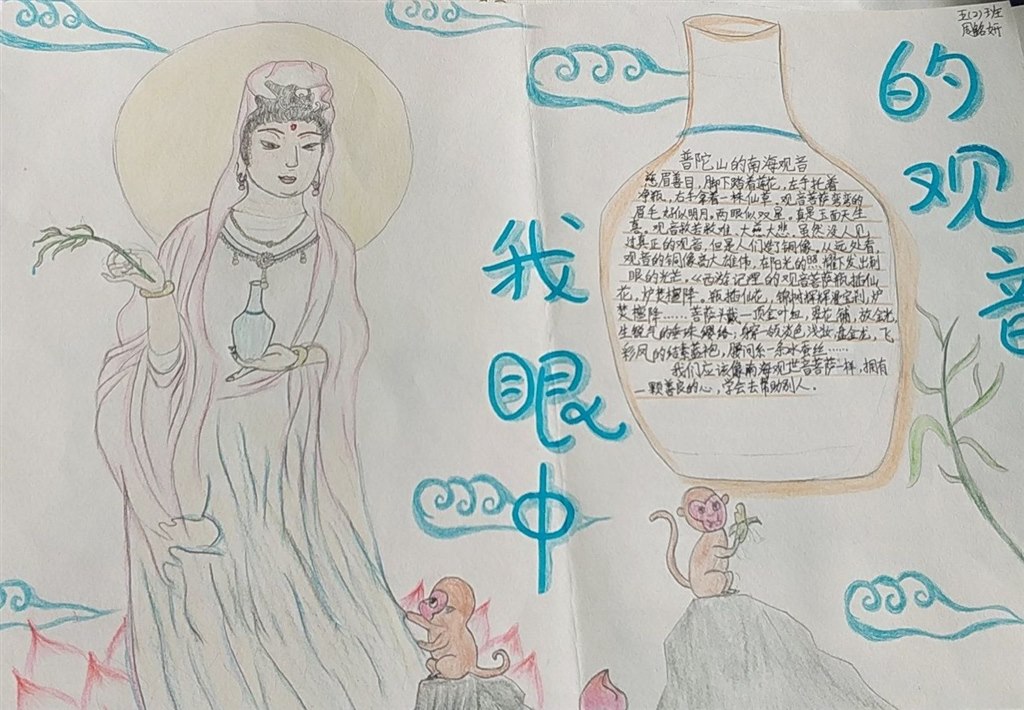 五(2)班
周铭妍
我眼中
的观音
普陀山的南海观音
慈眉善目,脚下踏着莲花,左手托着
净瓶,右手拿着一株仙草。观音菩萨弯弯的
眉毛如似明月,两眼似双星。真是玉面天生
喜。观音救苦救难,大慈大悲。虽然没人见
过真正的观音,但是人们造了铜像,从远处看,
观音的铜像高大雄伟,在阳光的照耀下发出刺
眼的光芒。《西游记里的观音菩萨瓶插仙
花,炉焚檀降。瓶插仙花,锦树样样是宝利,炉
焚檀降……菩萨头戴一顶金叶纽,翠花铺,放金光,
生锐气的垂珠缨络,身穿一领淡色,浅妆盘金龙,飞
彩凤的结素蓝袍,腰间系一条冰蚕丝……
我们应该像南海观世音菩萨一样,拥有
一颗善良的心,学会去帮助别人。